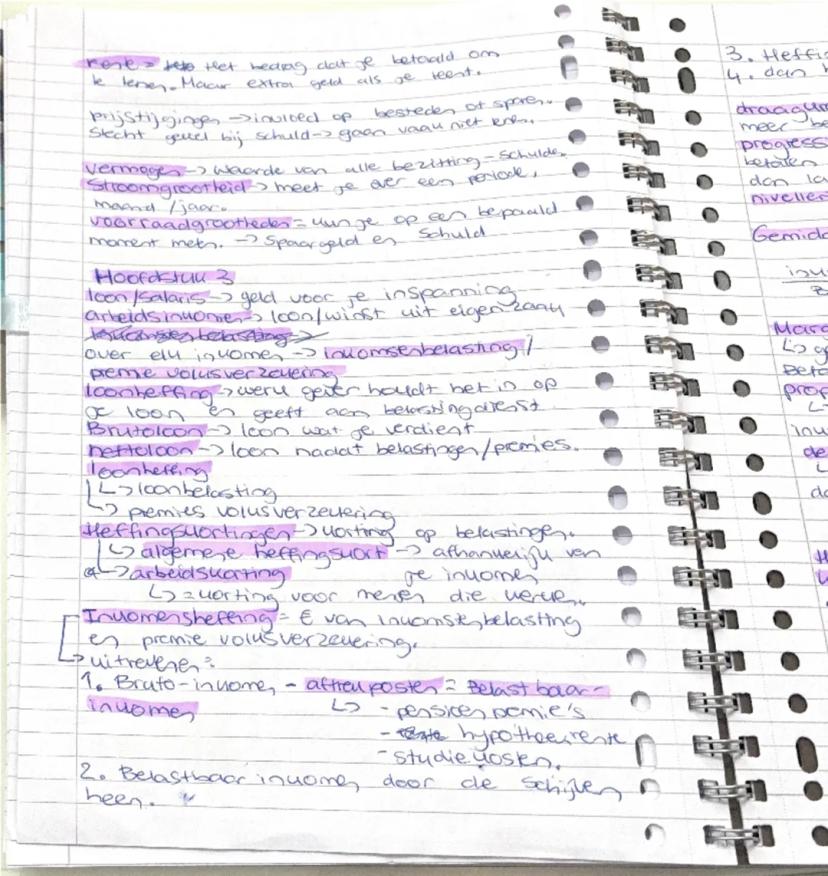 rente = Het bedrag dat je betaald om
te lenen. Maar extra geld als je leent.
prijstijgingen -> invloed op besteden of sparen.
slecht gevoel bij schuld -> gaan vaak niet lenen.
vermogen -> waarde van alle bezitting - schulden
Stroomgrootheid -> meet je over een periode,
maand/jaar.
voorraadgrootheden = kun je op een bepaald
moment meten. -> Spaargeld en schuld
Hoofdstuk 3
loon/salaris -> geld voor je inspanning
arbeidsinkomen -> loon/winst uit eigen zaak
inkomstenbelasting ->
over elk inkomen -> inkomsenbelasting/
premie volksverzekering
loonheffing -> werkgever houdt het in op
je loon en geeft aan belastingdienst
Brutoloon -> loon wat je verdient
nettoloon -> loon nadat belastingen/premies.
loonheffing
↳ loonbelasting
↳ premies volksverzekering
Heffingskortingen -> korting op belastingen.
↳ algemene heffingskort -> afhankelijk van
↳ arbeidskorting je inkomen
↳ = korting voor mensen die werken.
Inkomensheffing = € van inkomstenbelasting
en premie volksverzekering.
↳ uitrekenen:
1. Bruto-inkomen - aftrekposten = Belastbaar-
inkomen ↳ - pensioenpremie's
- hypotheekrente
- studiekosten.
2. Belastbaar inkomen door de schijven
heen.
3. Heffi
4. dan
meer be
progress
betalen
dan la
niveller
Gemidd
inko
Marg
↳ g
Beta
prop
inko
de
↳
da